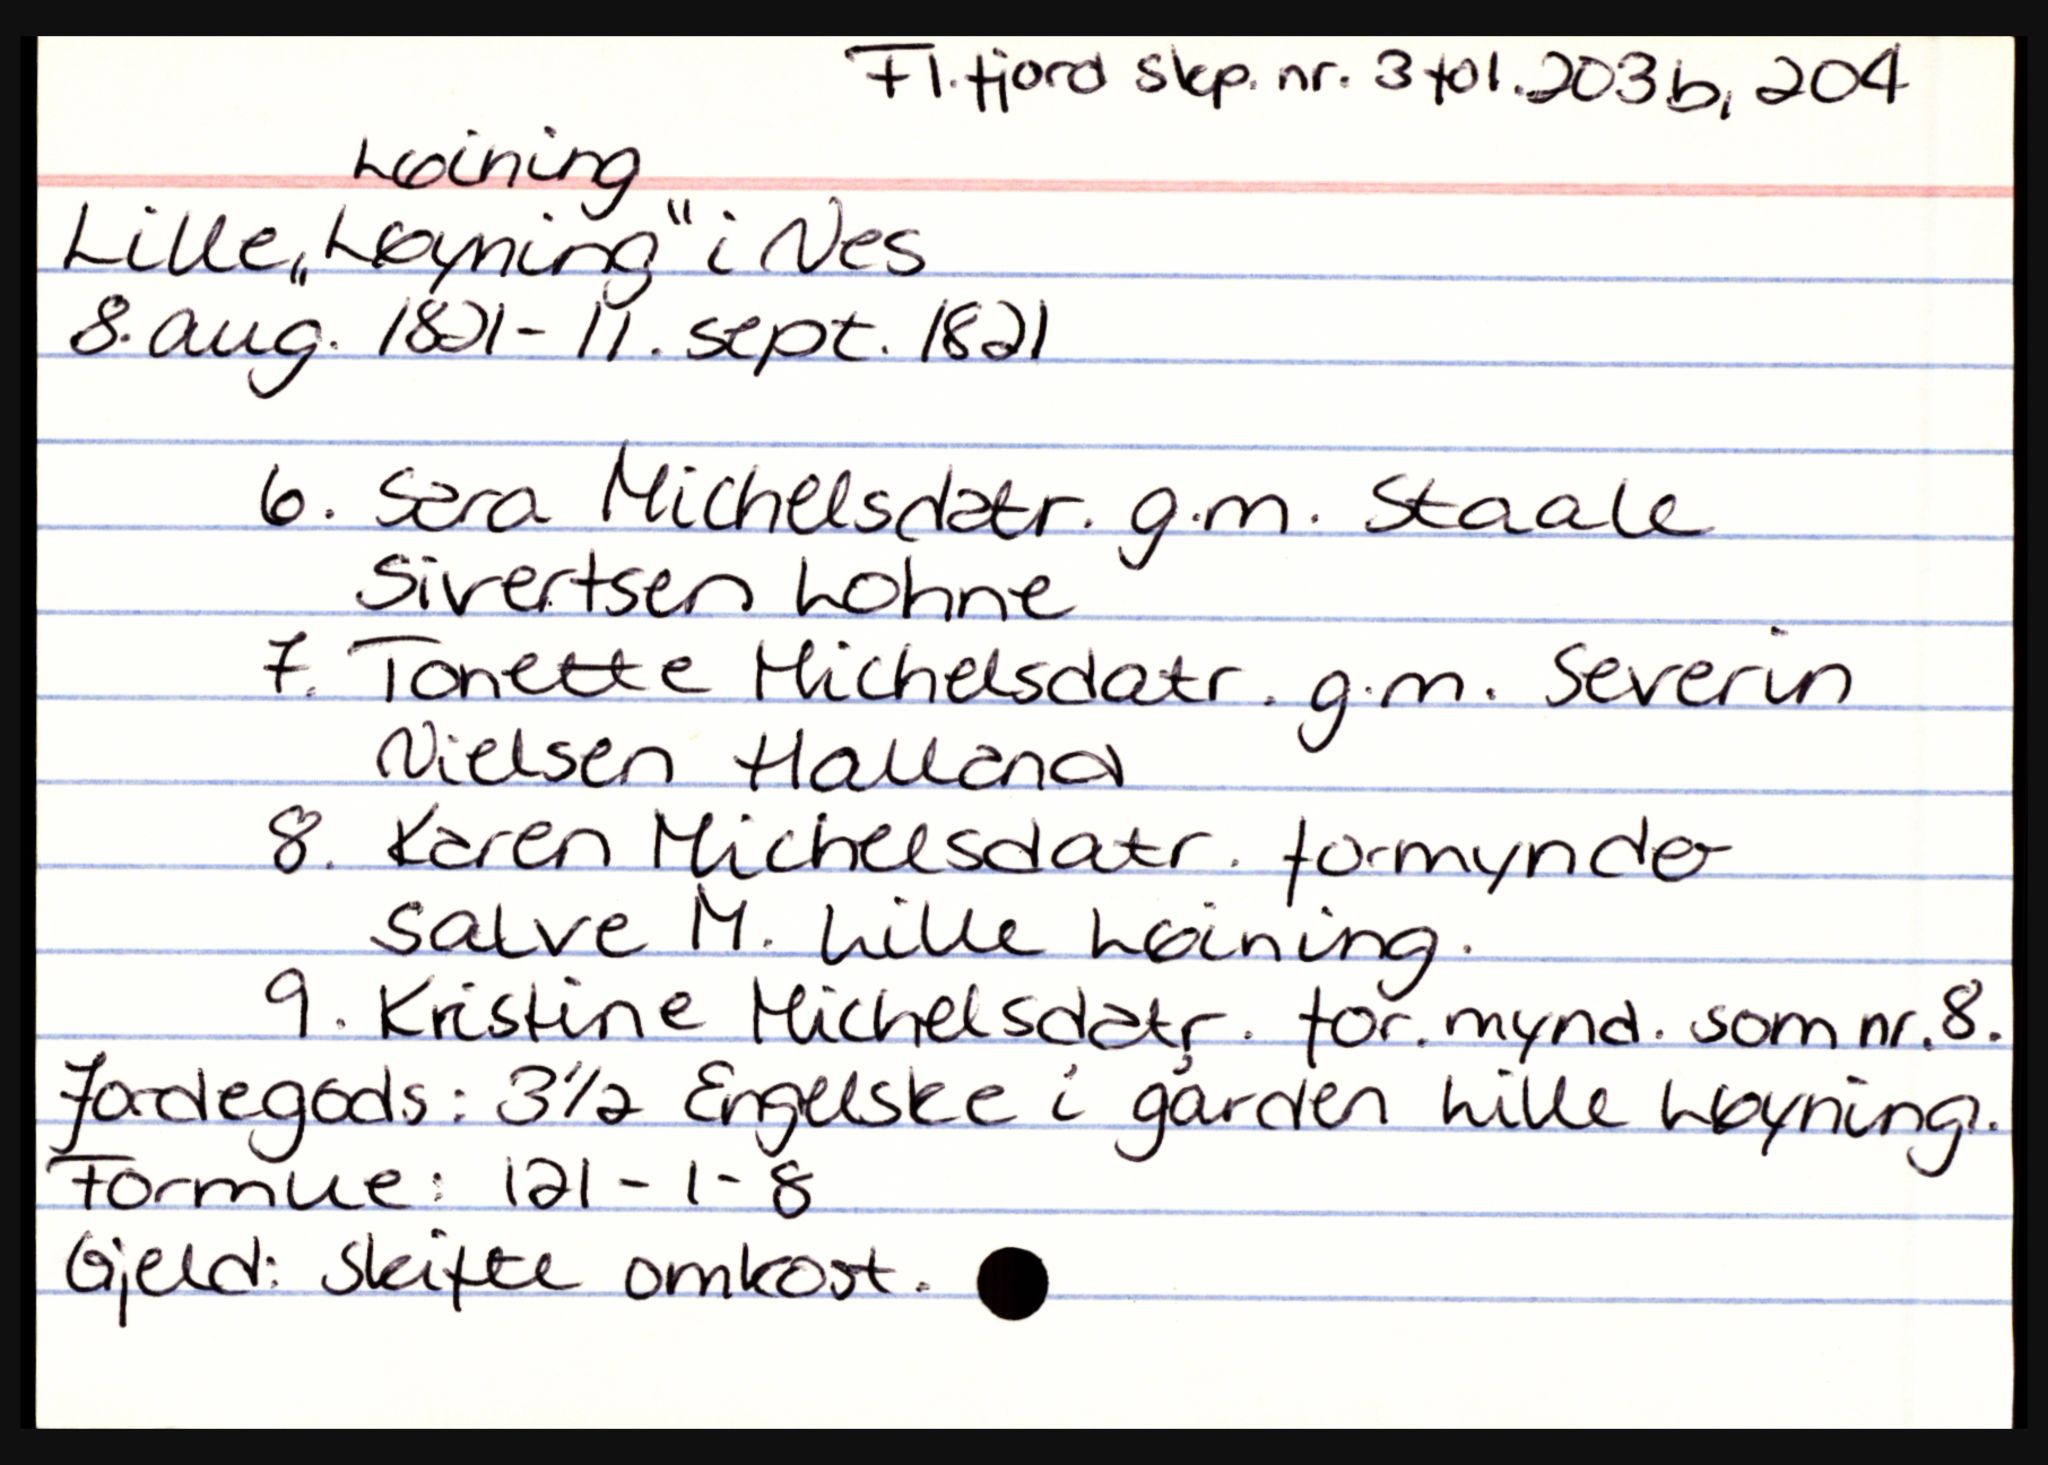 Fl.fjord skp. nr. 3 fol. 203b, 204
Løining
Lille „Løyning“ i Nes
8. aug. 1821 - 11. sept. 1821
6. Sara Michelsdatr. g.m. Staale
Sivertsen Lohne
7. Tonette Michelsdatr. g.m. Severin
Nielsen Halland
8. Karen Michelsdatr. formynder
Salve M. Lille Løining.
9. Kristine Michelsdatr. for.mynd. som nr. 8.
Jordegods: 3 1/2 Engelske i gården Lille Løyning.
Formue: 121 - 1 - 8
Gjeld: Skifte omkost.